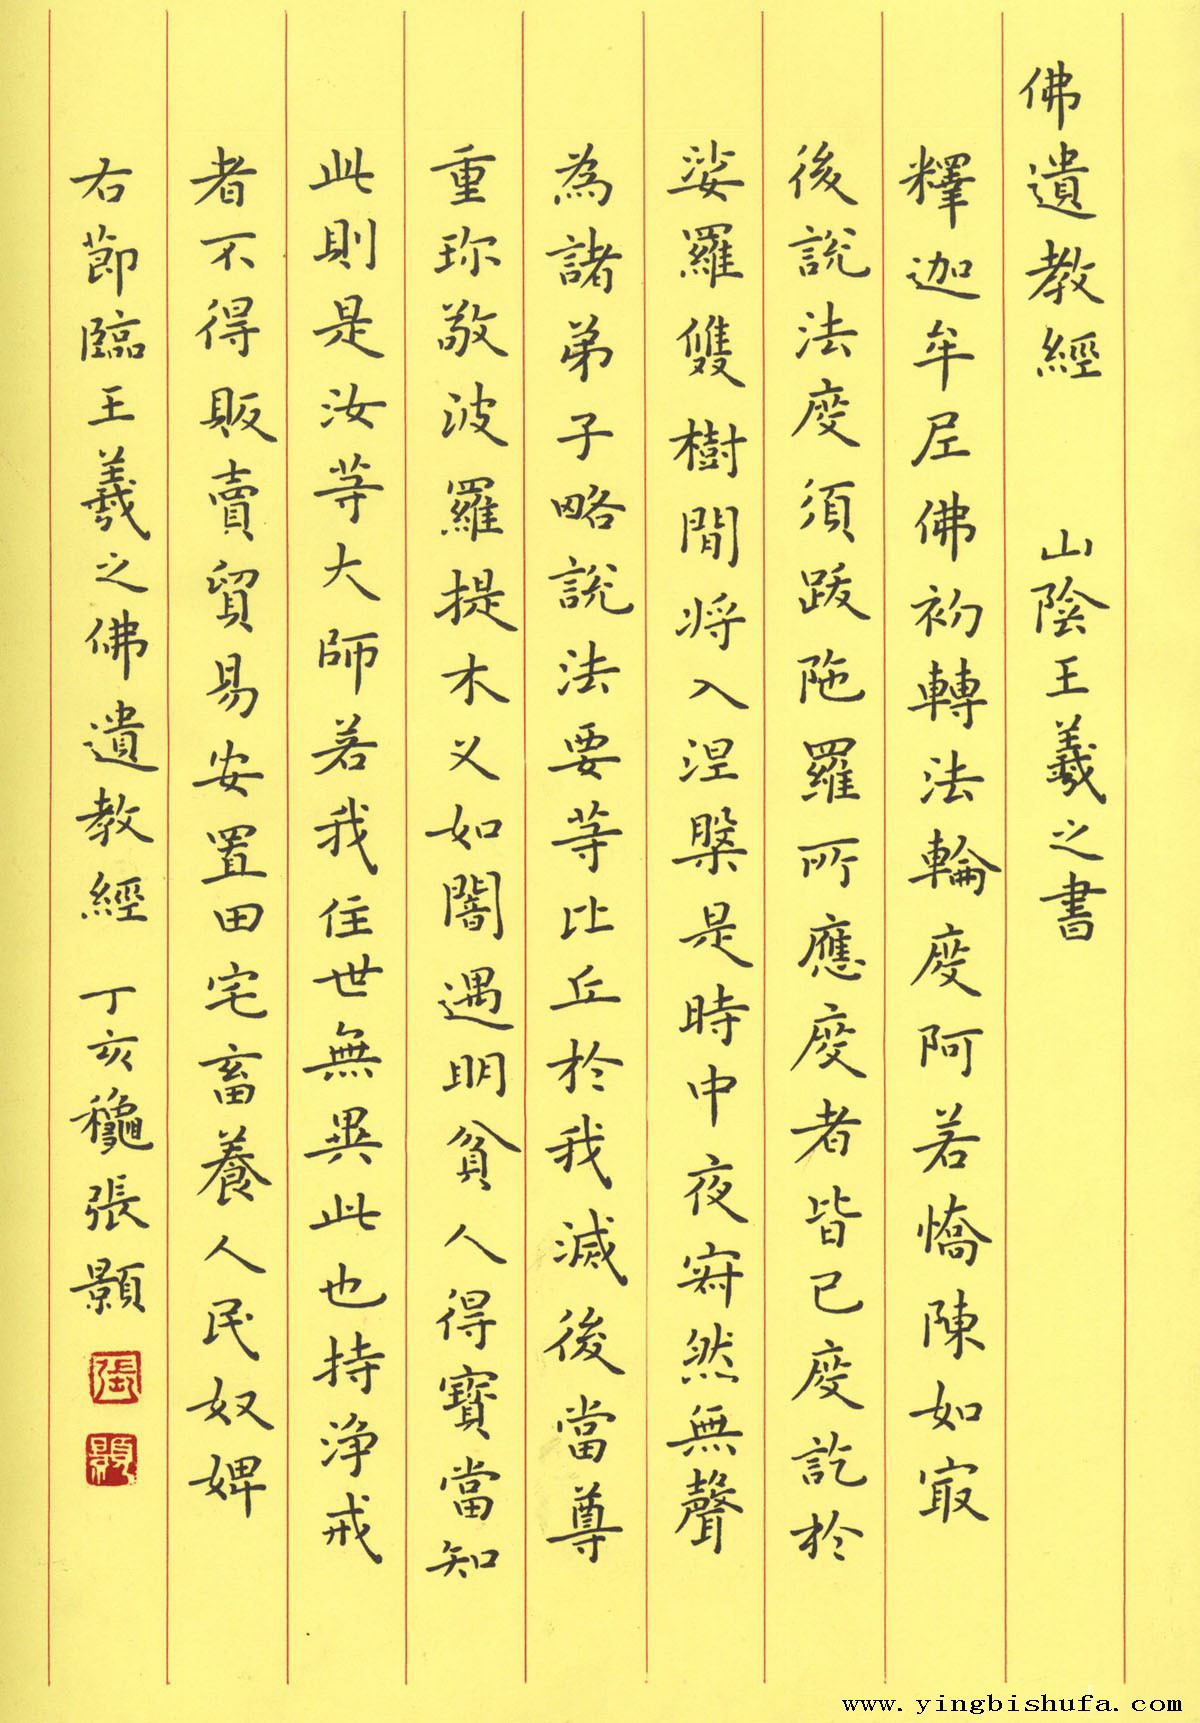 佛遺教經 山陰王羲之書
釋迦牟尼佛初轉法輪度阿若憍陳如㝡
後說法度須跋陁羅所應度者皆已度訖於
娑羅雙樹間将入涅槃是時中夜寂然無聲
為諸弟子略說法要等比丘於我滅後當尊
重珎敬波羅提木叉如闇遇明貧人得寶當知
此則是汝等大師若我住世無異此也持净戒
者不得販賣貿易安置田宅畜養人民奴婢
右節臨王羲之佛遺教經 丁亥龝張顥
張
顥
www.yingbishufa.com